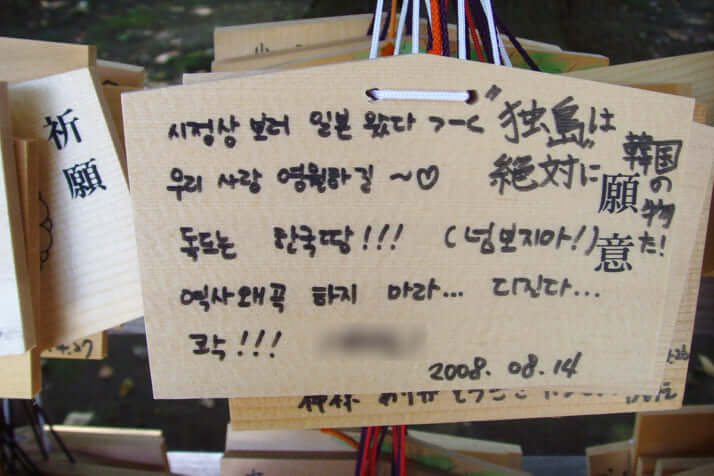 시정상 보러 일본 왔다
우리 사랑 영원하길 ~♡
독도는 한국땅!!! (넘보지마!)
역사왜곡 하지 마라... 디진다...
콱!!!
2008. 08. 14
"独島"は
絶対に
韓国の物だ!
願意
祈願